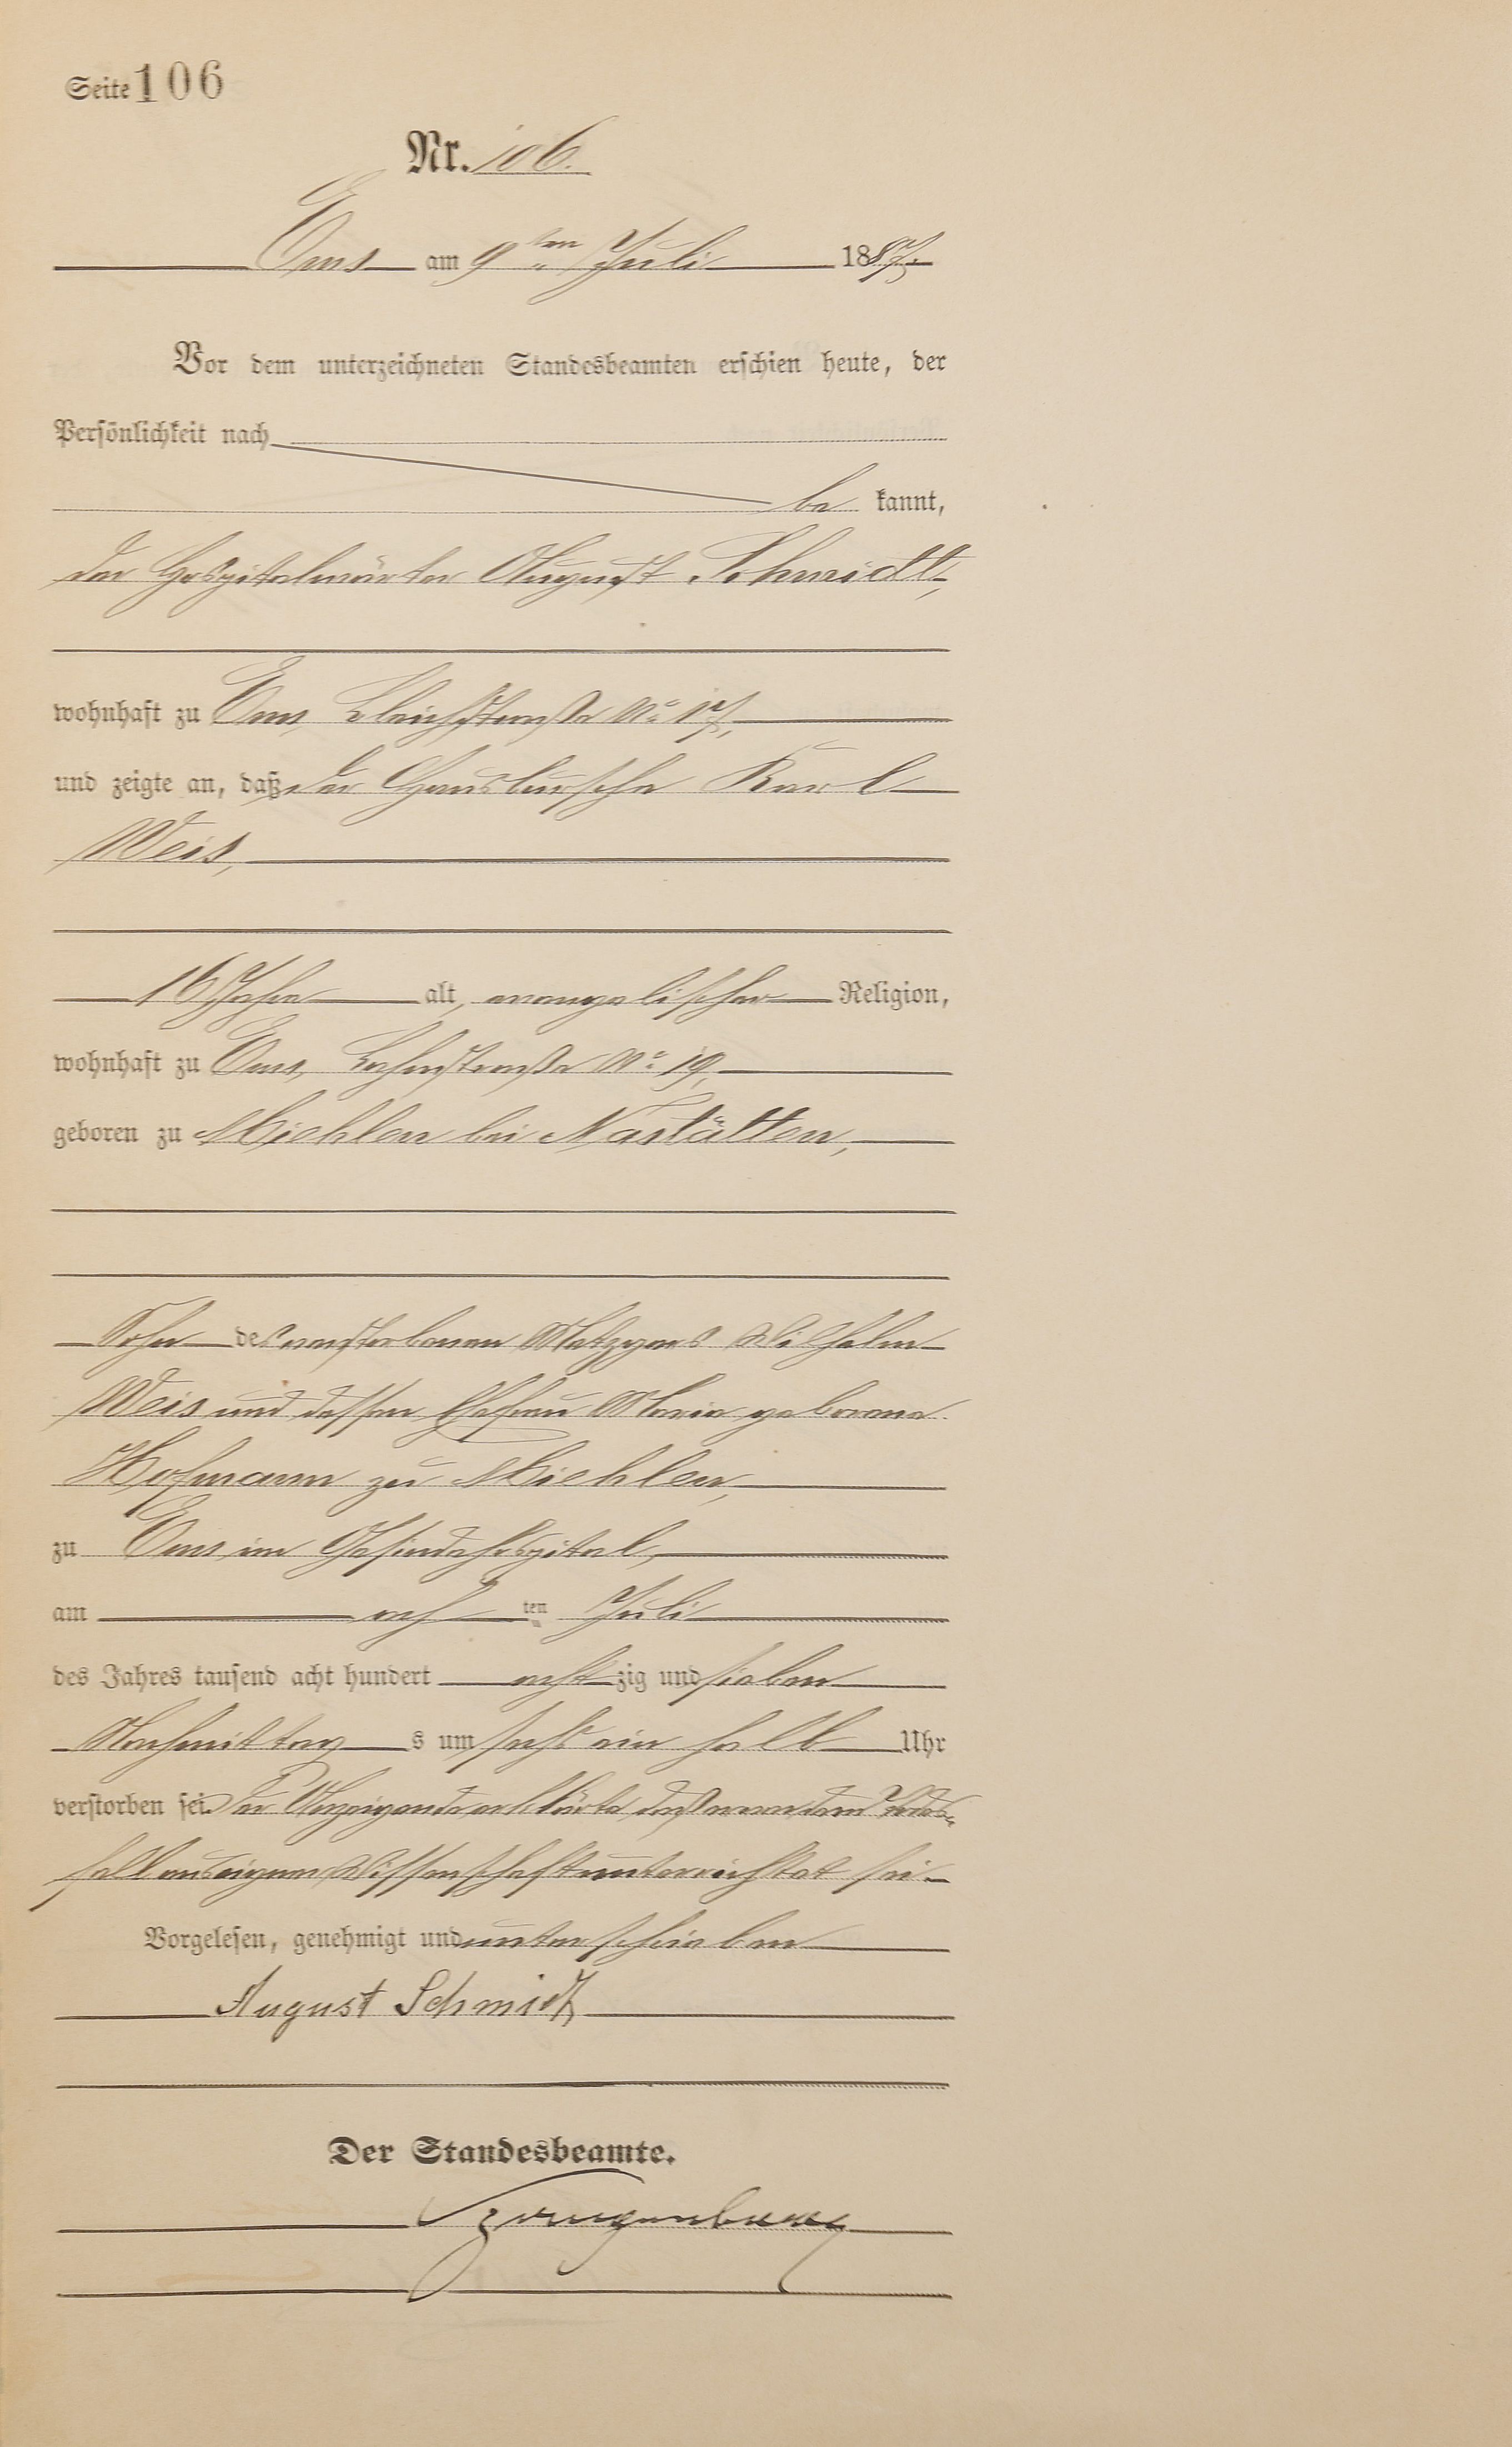 Seite 106
Nr. 106.
Ems am 9ten Juli 1887.
Vor dem unterzeichneten Standesbeamten erschien heute, der
Persönlichkeit nach
be kannt,
der Hospitalwärter August Schmidt,
wohnhaft zu Ems, Bleichstraße No 17,
und zeigte an, daß der Hausbursche Karl
Weis,
16 Jahre alt, evangelischer Religion,
wohnhaft zu Ems, Lahnstraße No 19,
geboren zu Miehlen bei Nastätten,
Sohn des verstorbenen Metzgers Wilhelm
Weis und dessen Ehefrau Maria geborene
Hofmann zu Miehlen,
zu Ems im Gesindehospital,
am ach ten Juli
des Jahres tausend acht hundert acht zig und sieben
Nachmittag s um sechs ein halb Uhr
verstorben sei. Der Anzeigende erklärte daß er von dem Todes-
fall aus eigener Wissenschaft unterrichtet sei.
Vorgelesen, genehmigt und unterschrieben
August Schmidt
Der Standesbeamte.